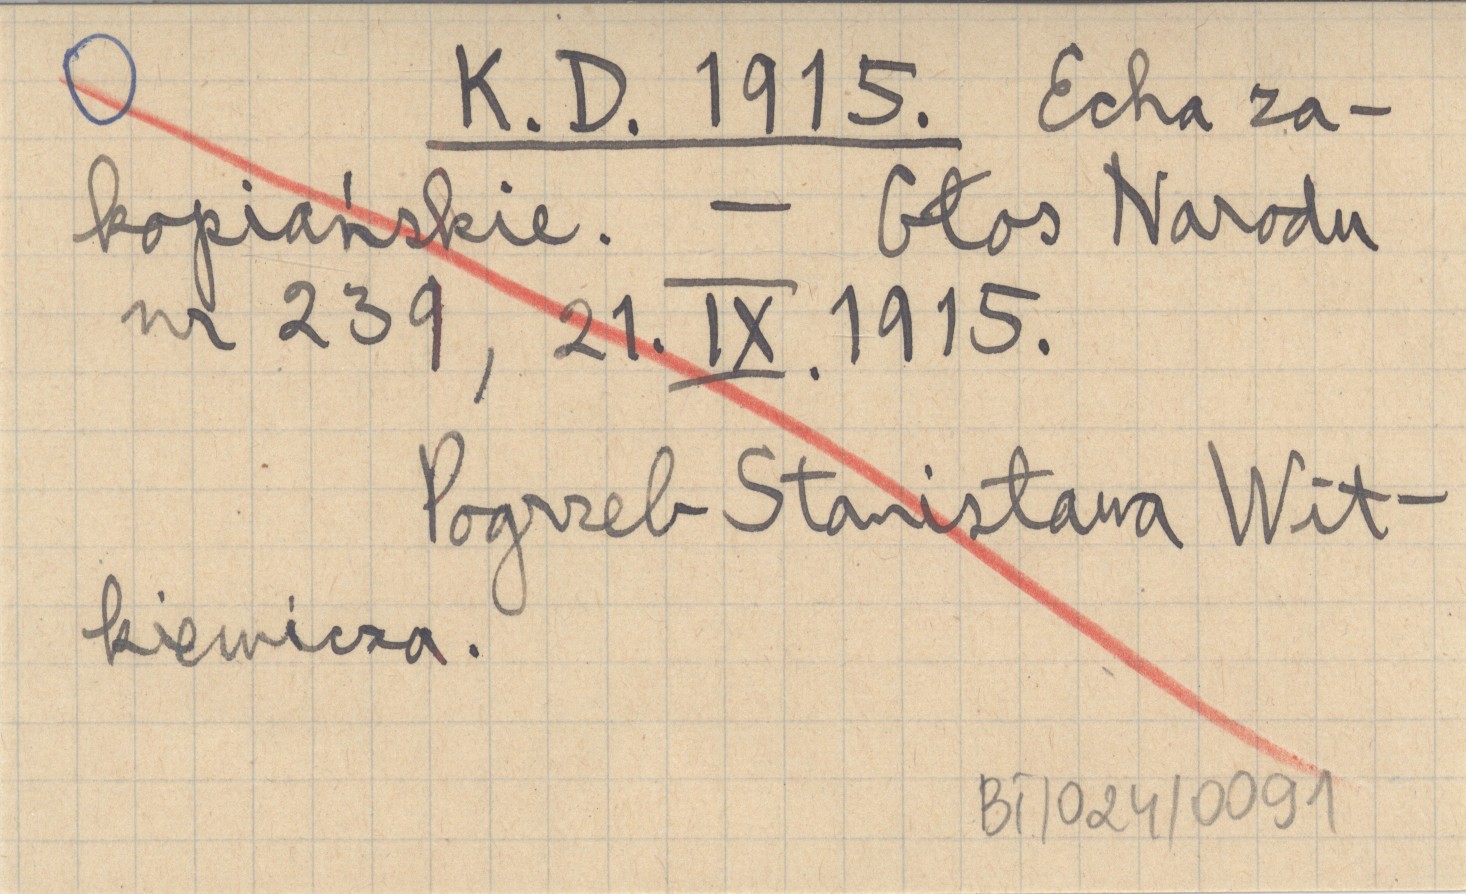 K.D. 1915. Echa za-
kopiańskie. — Głos Narodu
nr 239, 21. IX. 1915.
Pogrzeb Stanisława Wit-
kiewicza.
BT/024/0091